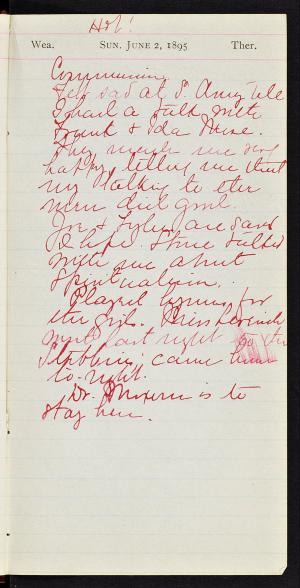 Hot!
Wea. SUN. JUNE 2, 1895 Ther.
Communion
Felt sad at S. Amy till
I had a talk with
Frank & Ida
They made me very
happy, telling me that
my talking to the
men did good.
Joe & are saved
I hope. talked
with me about
Spiritualism.
Played hymns for
the girls. Miss
last night
Stebbins came home
to-night.
Dr. is to
stay here.